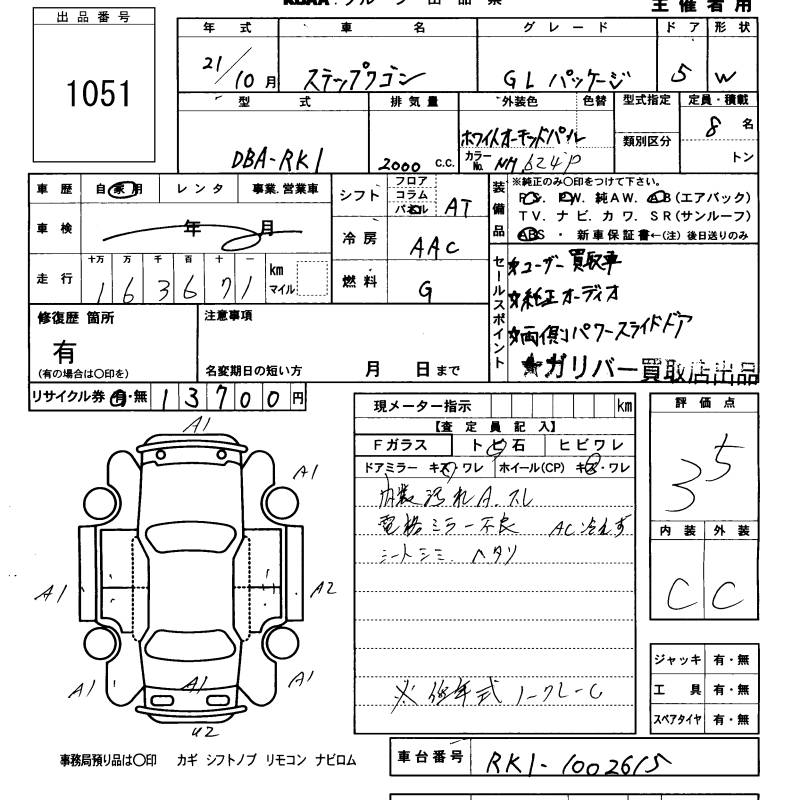 主催者用
出品番号
1051
年式 車名 グレード ドア 形状
21/10月 ステップワゴン GL パッケージ 5 W
型式 排気量 外装色 色替 型式指定 定員・積載
DBA-RK1 2000 c.c. ホワイトオーキッドパール カラーNo. NH624P 類別区分 8名
トン
車歴 自家用 レンタ 事業.営業車
シフト フロア コラム パネル AT
装備品 ※純正のみ〇印をつけて下さい。
PS. PW. 純AW. AB(エアバック)
TV. ナビ. カワ. SR(サンルーフ)
ABS ・ 新車保証書←(注)後日送りのみ
車検 年 月
冷房 AAC
走行 十万 万 千 百 十 一 km マイル
163671
燃料 G
セールスポイント
☆ユーザー買取車
☆純正オーディオ
☆両側パワースライドドア
★ガリバー買取店出品
修復歴 箇所
有
(有の場合は〇印を)
注意事項
名変期日の短い方 月 日まで
リサイクル券 有・無 13700円
現メーター指示 km
【査定員記入】
Fガラス ト ビ 石 ヒビワレ
ドアミラー キズ・ワレ ホイール(CP) キズ・ワレ
内装汚れA.スレ
電格ミラー不良 AC冷えず
シートシミ.ヘタリ
評価点
3.5
内装 外装
C C
A1
A1
A1
A1
A2
A1
A1
A1
U2
ジャッキ 有・無
工具 有・無
スペアタイヤ 有・無
事務局預り品は〇印 カギ シフトノブ リモコン ナビロム
車台番号 RK1-1002615